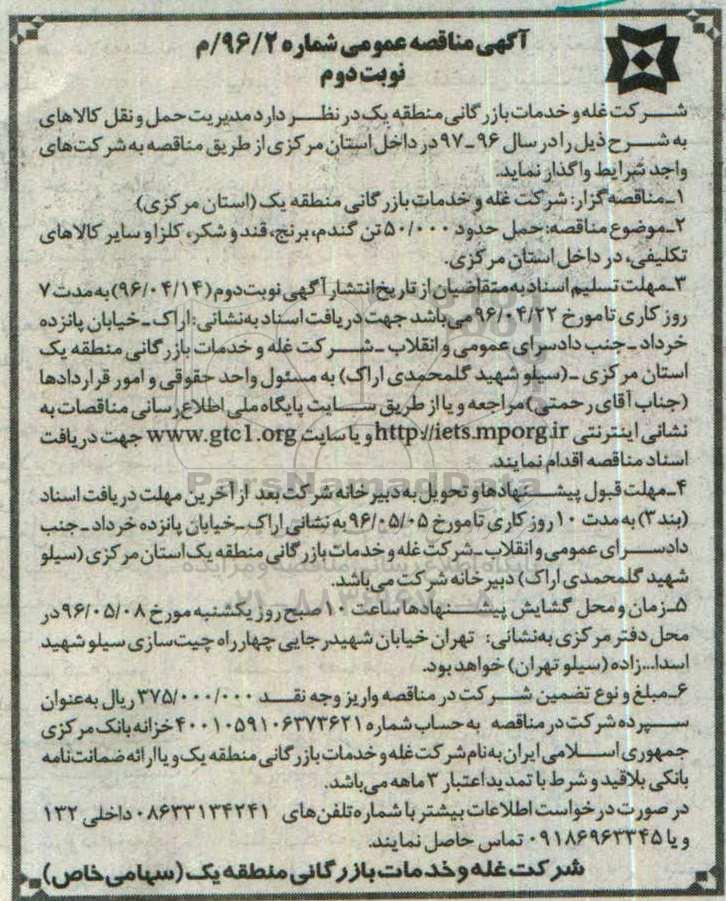 آگهی مناقصه عمومی شماره ۹۶/۲/م
نوبت دوم
شرکت غله و خدمات بازرگانی منطقه یک در نظر دارد مدیریت حمل و نقل کالاهای
به شرح ذیل را در سال ۹۶-۹۷ در داخل استان مرکزی از طریق مناقصه به شرکت‌های
واجد شرایط واگذار نماید.
۱-مناقصه‌گزار: شرکت غله و خدمات بازرگانی منطقه یک (استان مرکزی)
۲-موضوع مناقصه: حمل حدود ۵۰/۰۰۰ تن گندم، برنج، قند و شکر، کلزا و سایر کالاهای
تکلیفی، در داخل استان مرکزی.
۳-مهلت تسلیم اسناد به متقاضیان از تاریخ انتشار آگهی نوبت دوم (۹۶/۰۴/۱۴) به مدت ۷
روز کاری تا مورخ ۹۶/۰۴/۲۲ می‌باشد جهت دریافت اسناد به نشانی: اراک-خیابان پانزده
خرداد-جنب دادسرای عمومی و انقلاب-شرکت غله و خدمات بازرگانی منطقه یک
استان مرکزی-(سیلو شهید گلمحمدی اراک) به مسئول واحد حقوقی و امور قراردادها
(جناب آقای رحمتی) مراجعه و یا از طریق سایت پایگاه ملی اطلاع‌رسانی مناقصات به
نشانی اینترنتی http://iets.mporg.ir و یا سایت www.gtc1.org جهت دریافت
اسناد مناقصه اقدام نمایند.
ParsNamadData
۴-مهلت قبول پیشنهادها و تحویل به دبیرخانه شرکت بعد از آخرین مهلت دریافت اسناد
(بند ۳) به مدت ۱۰ روز کاری تا مورخ ۹۶/۰۵/۰۵ به نشانی اراک-خیابان پانزده خرداد-جنب
دادسرای عمومی و انقلاب-شرکت غله و خدمات بازرگانی منطقه یک استان مرکزی (سیلو
شهید گلمحمدی اراک) دبیرخانه شرکت می‌باشد.
۵-زمان و محل گشایش پیشنهادها ساعت ۱۰ صبح روز یکشنبه مورخ ۹۶/۰۵/۰۸ در
محل دفتر مرکزی به نشانی: تهران خیابان شهید رجایی چهارراه چیت‌سازی سیلو شهید
اسدا...زاده (سیلو تهران) خواهد بود.
۶-مبلغ و نوع تضمین شرکت در مناقصه واریز وجه نقد ۳۷۵/۰۰۰/۰۰۰ ریال به عنوان
سپرده شرکت در مناقصه به حساب شماره ۴۰۰۱۰۵۹۱۰۶۳۷۳۶۲۱ خزانه بانک مرکزی
جمهوری اسلامی ایران به نام شرکت غله و خدمات بازرگانی منطقه یک و یا ارائه ضمانت‌نامه
بانکی بلاقید و شرط با تمدید اعتبار ۳ ماهه می‌باشد.
در صورت درخواست اطلاعات بیشتر با شماره تلفن‌های ۰۸۶۳۳۱۳۴۲۴۱ داخلی ۱۳۲
و یا ۰۹۱۸۶۹۶۳۳۴۵ تماس حاصل نمایند.
شرکت غله و خدمات بازرگانی منطقه یک (سهامی خاص)